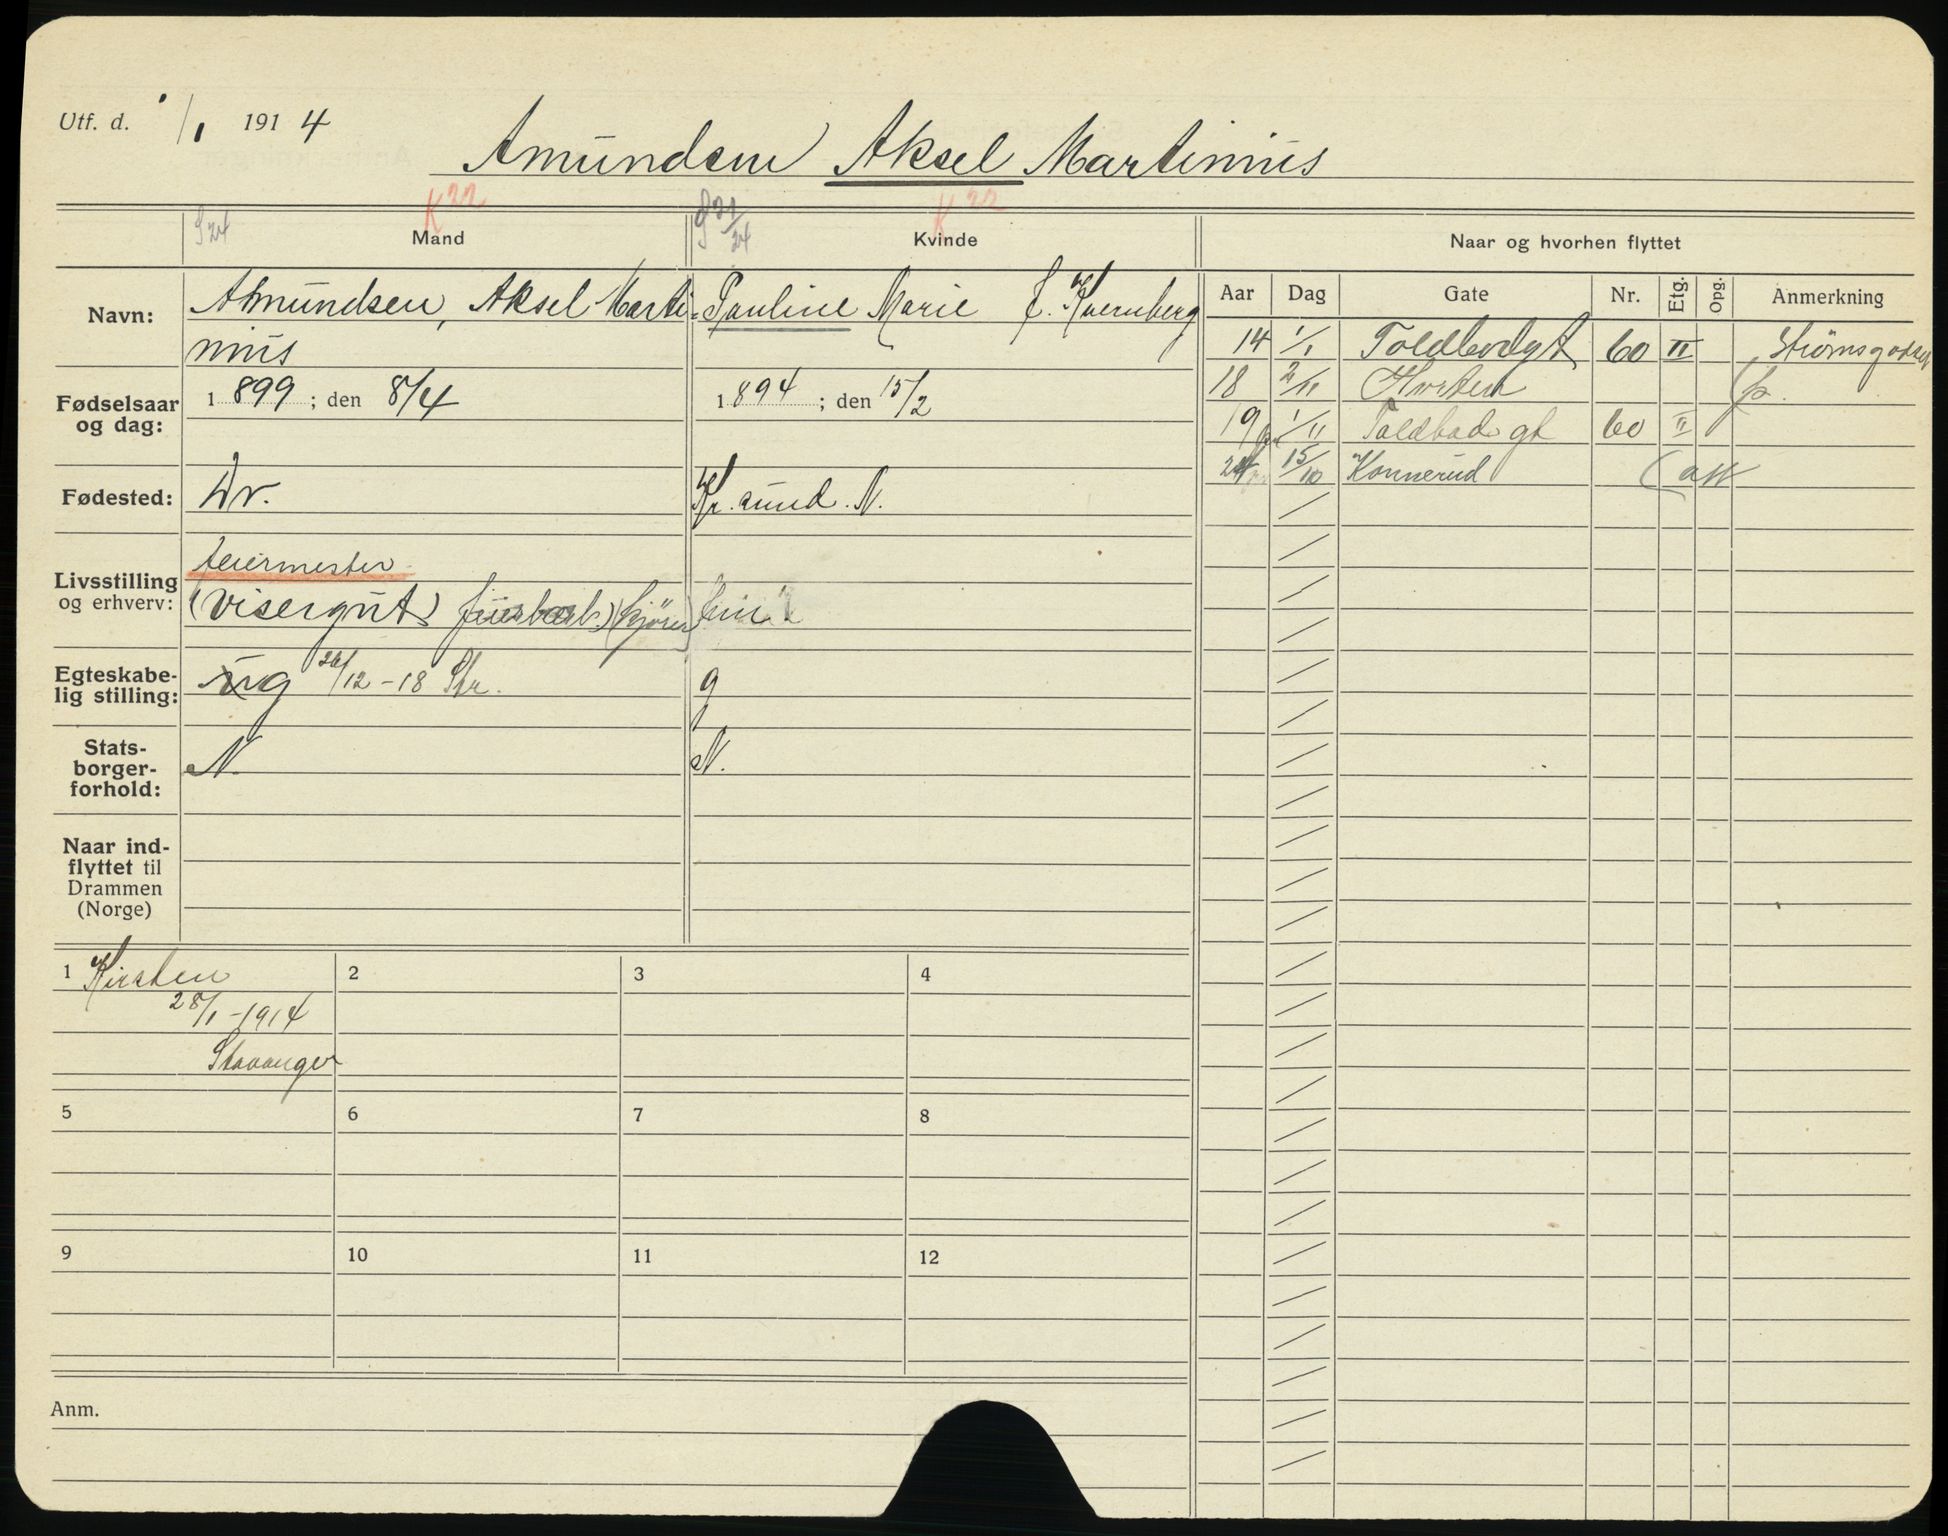 Utf. d. 1/1 1914
Amundsen Aksel Martinius
S24 K22 S21/24 K22
Mand Kvinde Naar og hvorhen flyttet
Navn: Amundsen, Aksel Marti-
nius
Pauline Marie f. Kvernberg
Fødselsaar
og dag: 1899; den 8/4
1894; den 15/2
Fødested: Dr.
Kr.sund. N.
Livsstilling
og erhverv: feiermester
(visergut)
Egteskabe-
lig stilling: ug 26/12-18 Str.
g
Stats-
borger-
forhold: N.
N.
Naar ind-
flyttet til
Drammen
(Norge)
Aar Dag Gate Nr. Etg. Opg. Anmerkning
14 1/1 Toldbodgt 60 II Strømsgodset
18 2/11 Horten
19 1/11 Toldbodgt 60 II
24 15/10 Konnerud
1 Kirsten
28/1-1914
Stavanger
2
3
4
5
6
7
8
9
10
11
12
Anm.